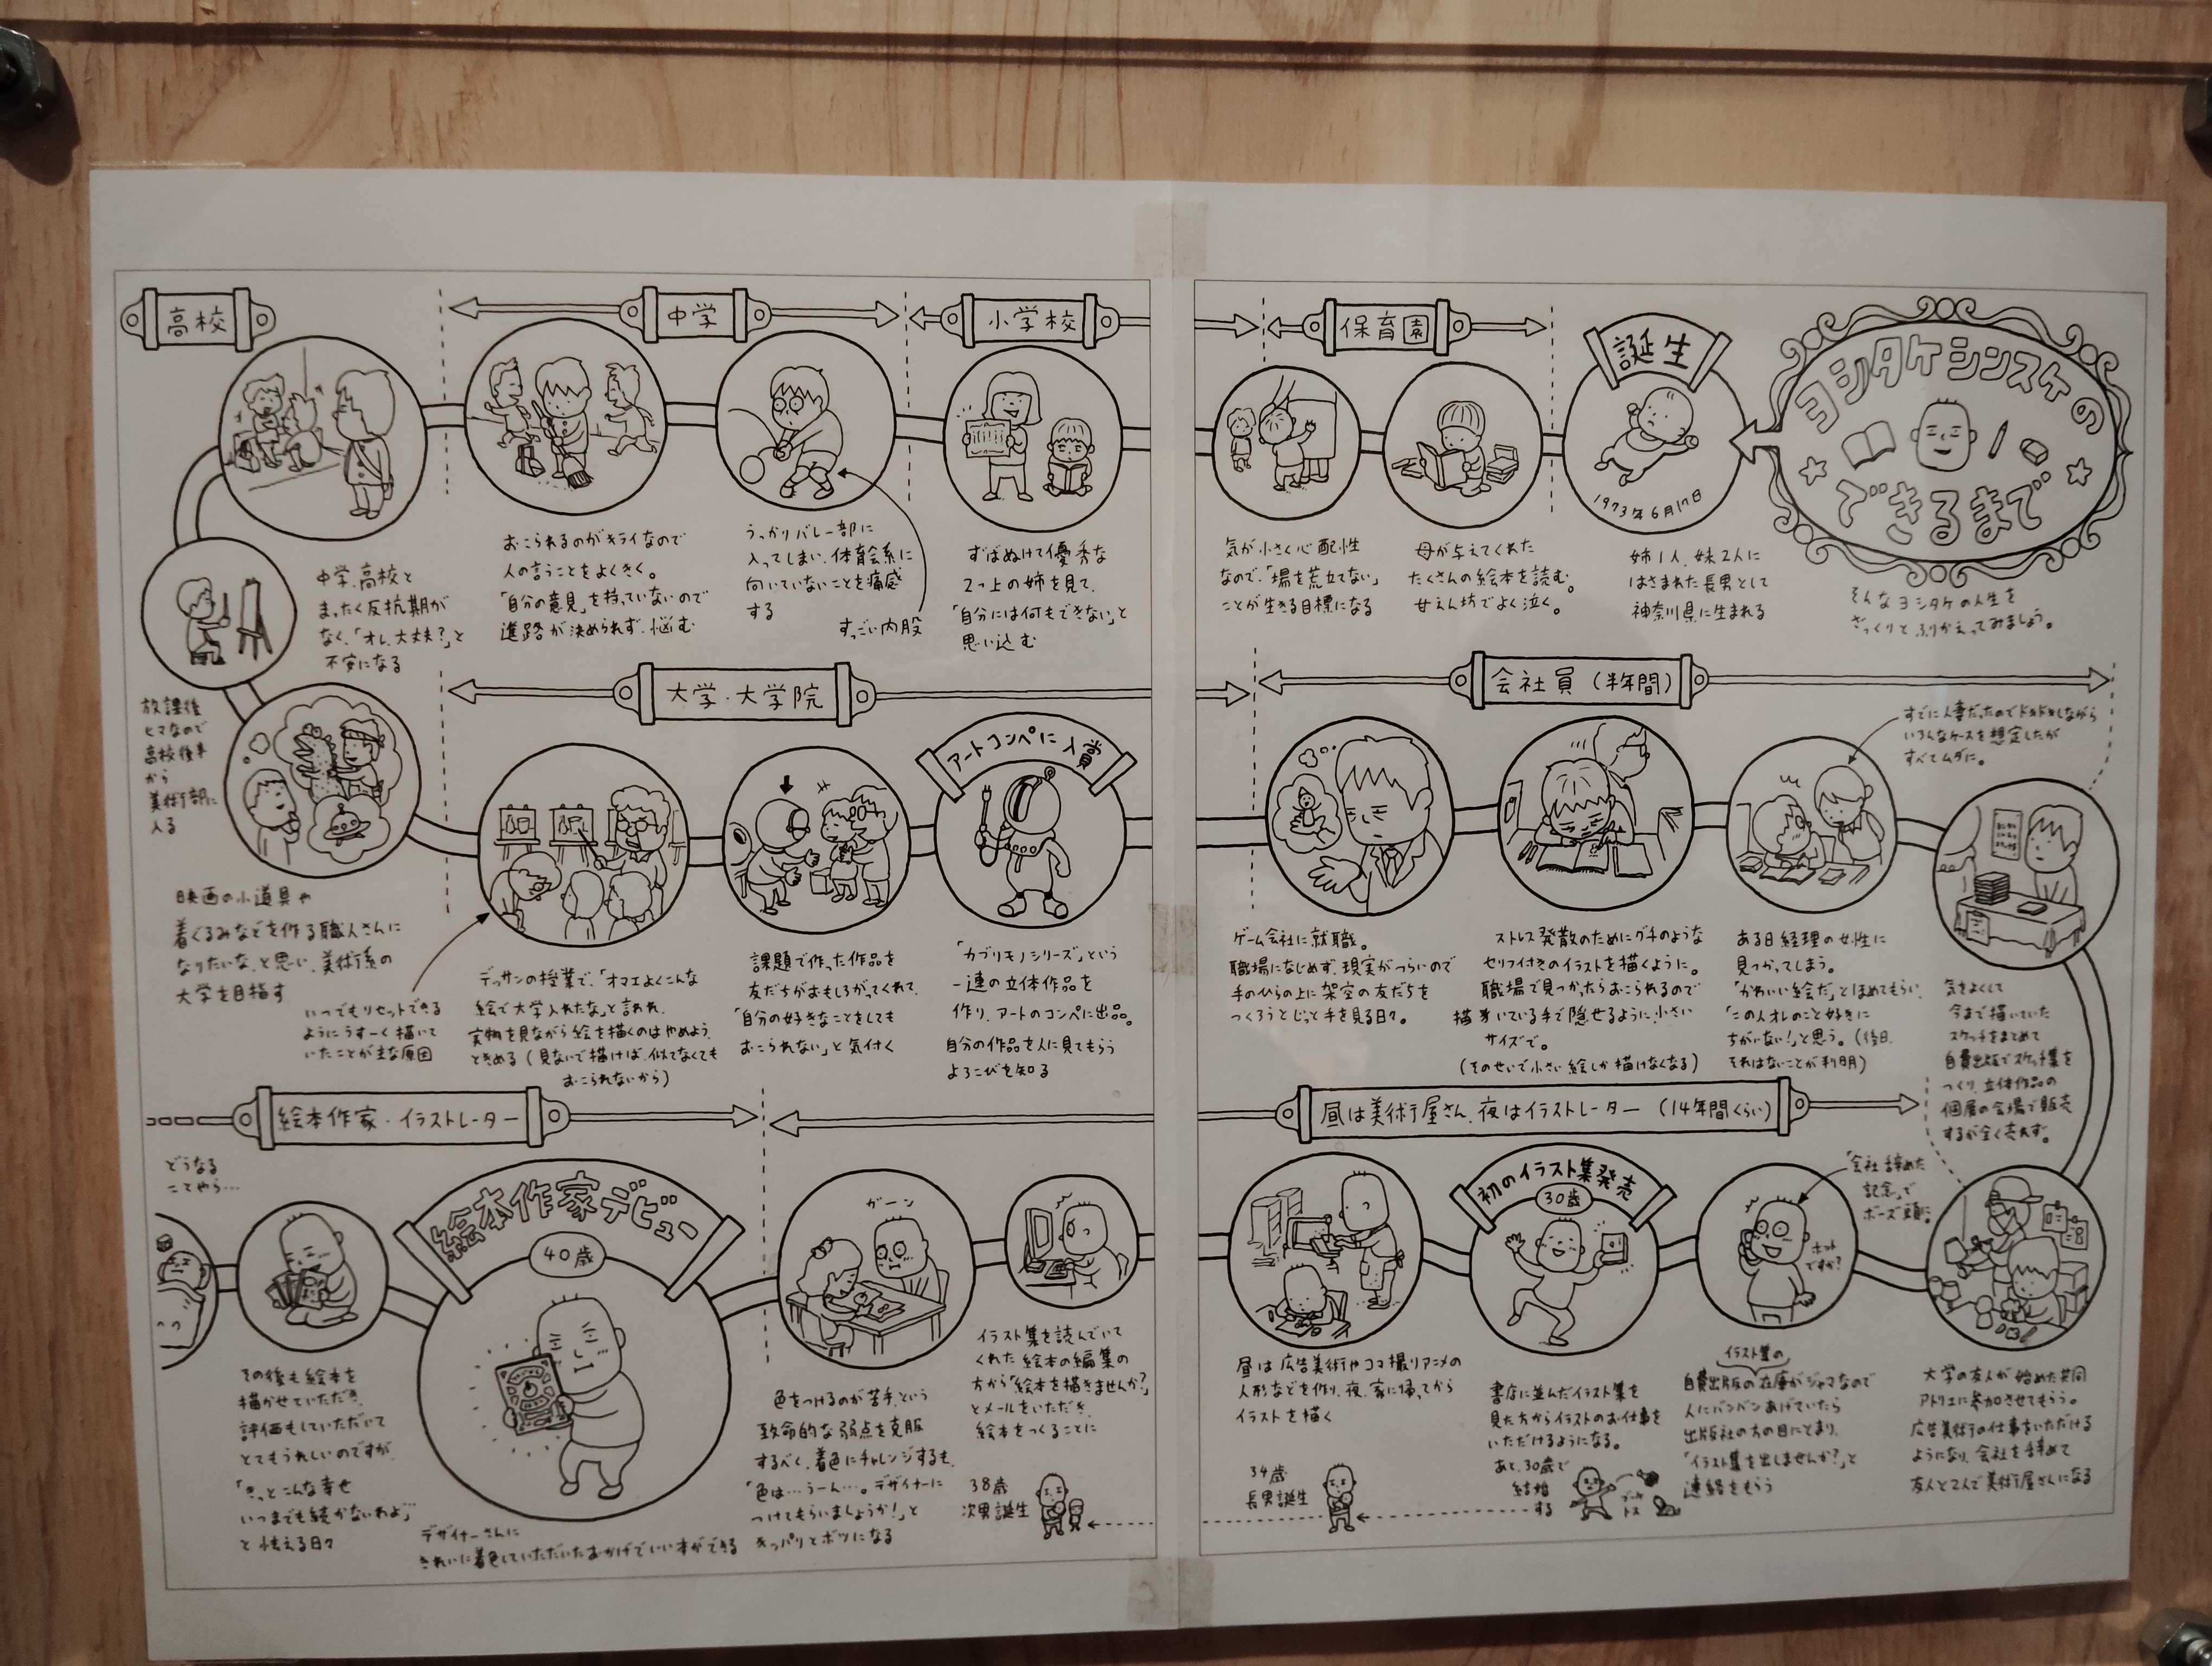 ヨシタケシンスケの
できるまで
そんなヨシタケの人生を
ざっくりとふりかえってみましょう。
誕生
1973年6月17日
姉1人、妹2人に
はさまれた長男として
神奈川県に生まれる
保育園
母が与えてくれた
たくさんの絵本を読む。
甘えん坊でよく泣く。
気が小さく心配性
なので、「場を荒立てない」
ことが生きる目標になる
小学校
ずばぬけて優秀な
2つ上の姉を見て、
「自分には何もできない」と
思い込む
中学
うっかりバレー部に
入ってしまい、体育会系に
向いていないことを痛感
する
すっごい内股
おこられるのがキライなので
人の言うことをよくきく。
「自分の意見」を持っていないので
進路が決められず、悩む
高校
中学、高校と
まったく反抗期が
なく、「オレ、大丈夫?」と
不安になる
放課後
ヒマなので
高校後半
から
美術部に
入る
映画の小道具や
着ぐるみなどを作る職人さんに
なりたいな、と思い、美術系の
大学を目指す
大学・大学院
いつでもリセットできる
ようにうすーく描いて
いたことが主な原因
デッサンの授業で、「オマエよくこんな
絵で大学入れたな」と言われ、
実物を見ながら絵を描くのはやめよう、
ときめる(見ないで描けば、似てなくても
おこられないから)
課題で作った作品を
友だちがおもしろがってくれて、
「自分の好きなことをしても
おこられない」と気付く
アートコンペに入賞
「カブリモノシリーズ」という
一連の立体作品を
作り、アートのコンペに出品。
自分の作品を人に見てもらう
よろこびを知る
会社員(半年間)
ゲーム会社に就職。
職場になじめず、現実がつらいので
手のひらの上に架空の友だちを
つくろうとじっと手を見る日々。
ストレス発散のためにグチのような
セリフ付きのイラストを描くように。
職場で見つかったらおこられるので
描いている手で隠せるように、小さい
サイズで。
(そのせいで小さい絵しか描けなくなる)
ある日経理の女性に
見つかってしまう。
「かわいい絵だ」とほめてもらい、
「この人オレのこと好きに
ちがいない!」と思う。(後日、
それはないことが判明)
すでに人妻だったのでドキドキしながら
いろんなケースを想定したが
すべてムダに。
気をよくして
今まで描いていた
スケッチをまとめて
自費出版でスケッチ集を
つくり、立体作品の
個展の会場で販売
するが全く売れず。
昼は美術屋さん、夜はイラストレーター(14年間くらい)
大学の友人が始めた共同
アトリエに参加させてもらう。
広告美術の仕事をいただける
ようになり、会社を辞めて
友人と2人で美術屋さんになる
「会社辞めた
記念」で
ボーズ頭に
ホント
ですか?
イラスト集の
自費出版の在庫がジャマなので
人にバンバンあげていたら
出版社の方の目にとまり、
「イラスト集を出しませんか?」と
連絡をもらう
初のイラスト集発売
30歳
書店に並んだイラスト集を
見た方からイラストのお仕事を
いただけるようになる。
あと、30歳で
結婚
する
ブーケ
トス
昼は広告美術やコマ撮りアニメの
人形などを作り、夜、家に帰ってから
イラストを描く
34歳
長男誕生
イラスト集を読んでいて
くれた絵本の編集の
方から「絵本を描きませんか?」
とメールをいただき、
絵本をつくることに
38歳
次男誕生
ガーン
色をつけるのが苦手、という
致命的な弱点を克服
するべく、着色にチャレンジするも、
「色は…うーん…。デザイナーに
つけてもらいましょうか!」と
きっぱりとボツになる
絵本作家・イラストレーター
絵本作家デビュー
40歳
デザイナーさんに
きれいに着色していただいたおかげでいい本ができる
その後も絵本を
描かせていただき、
評価もしていただいて
とてもうれしいのですが、
「きっとこんな幸せ
いつまでも続かないわよ…」
と怯える日々
どうなる
ことやら…